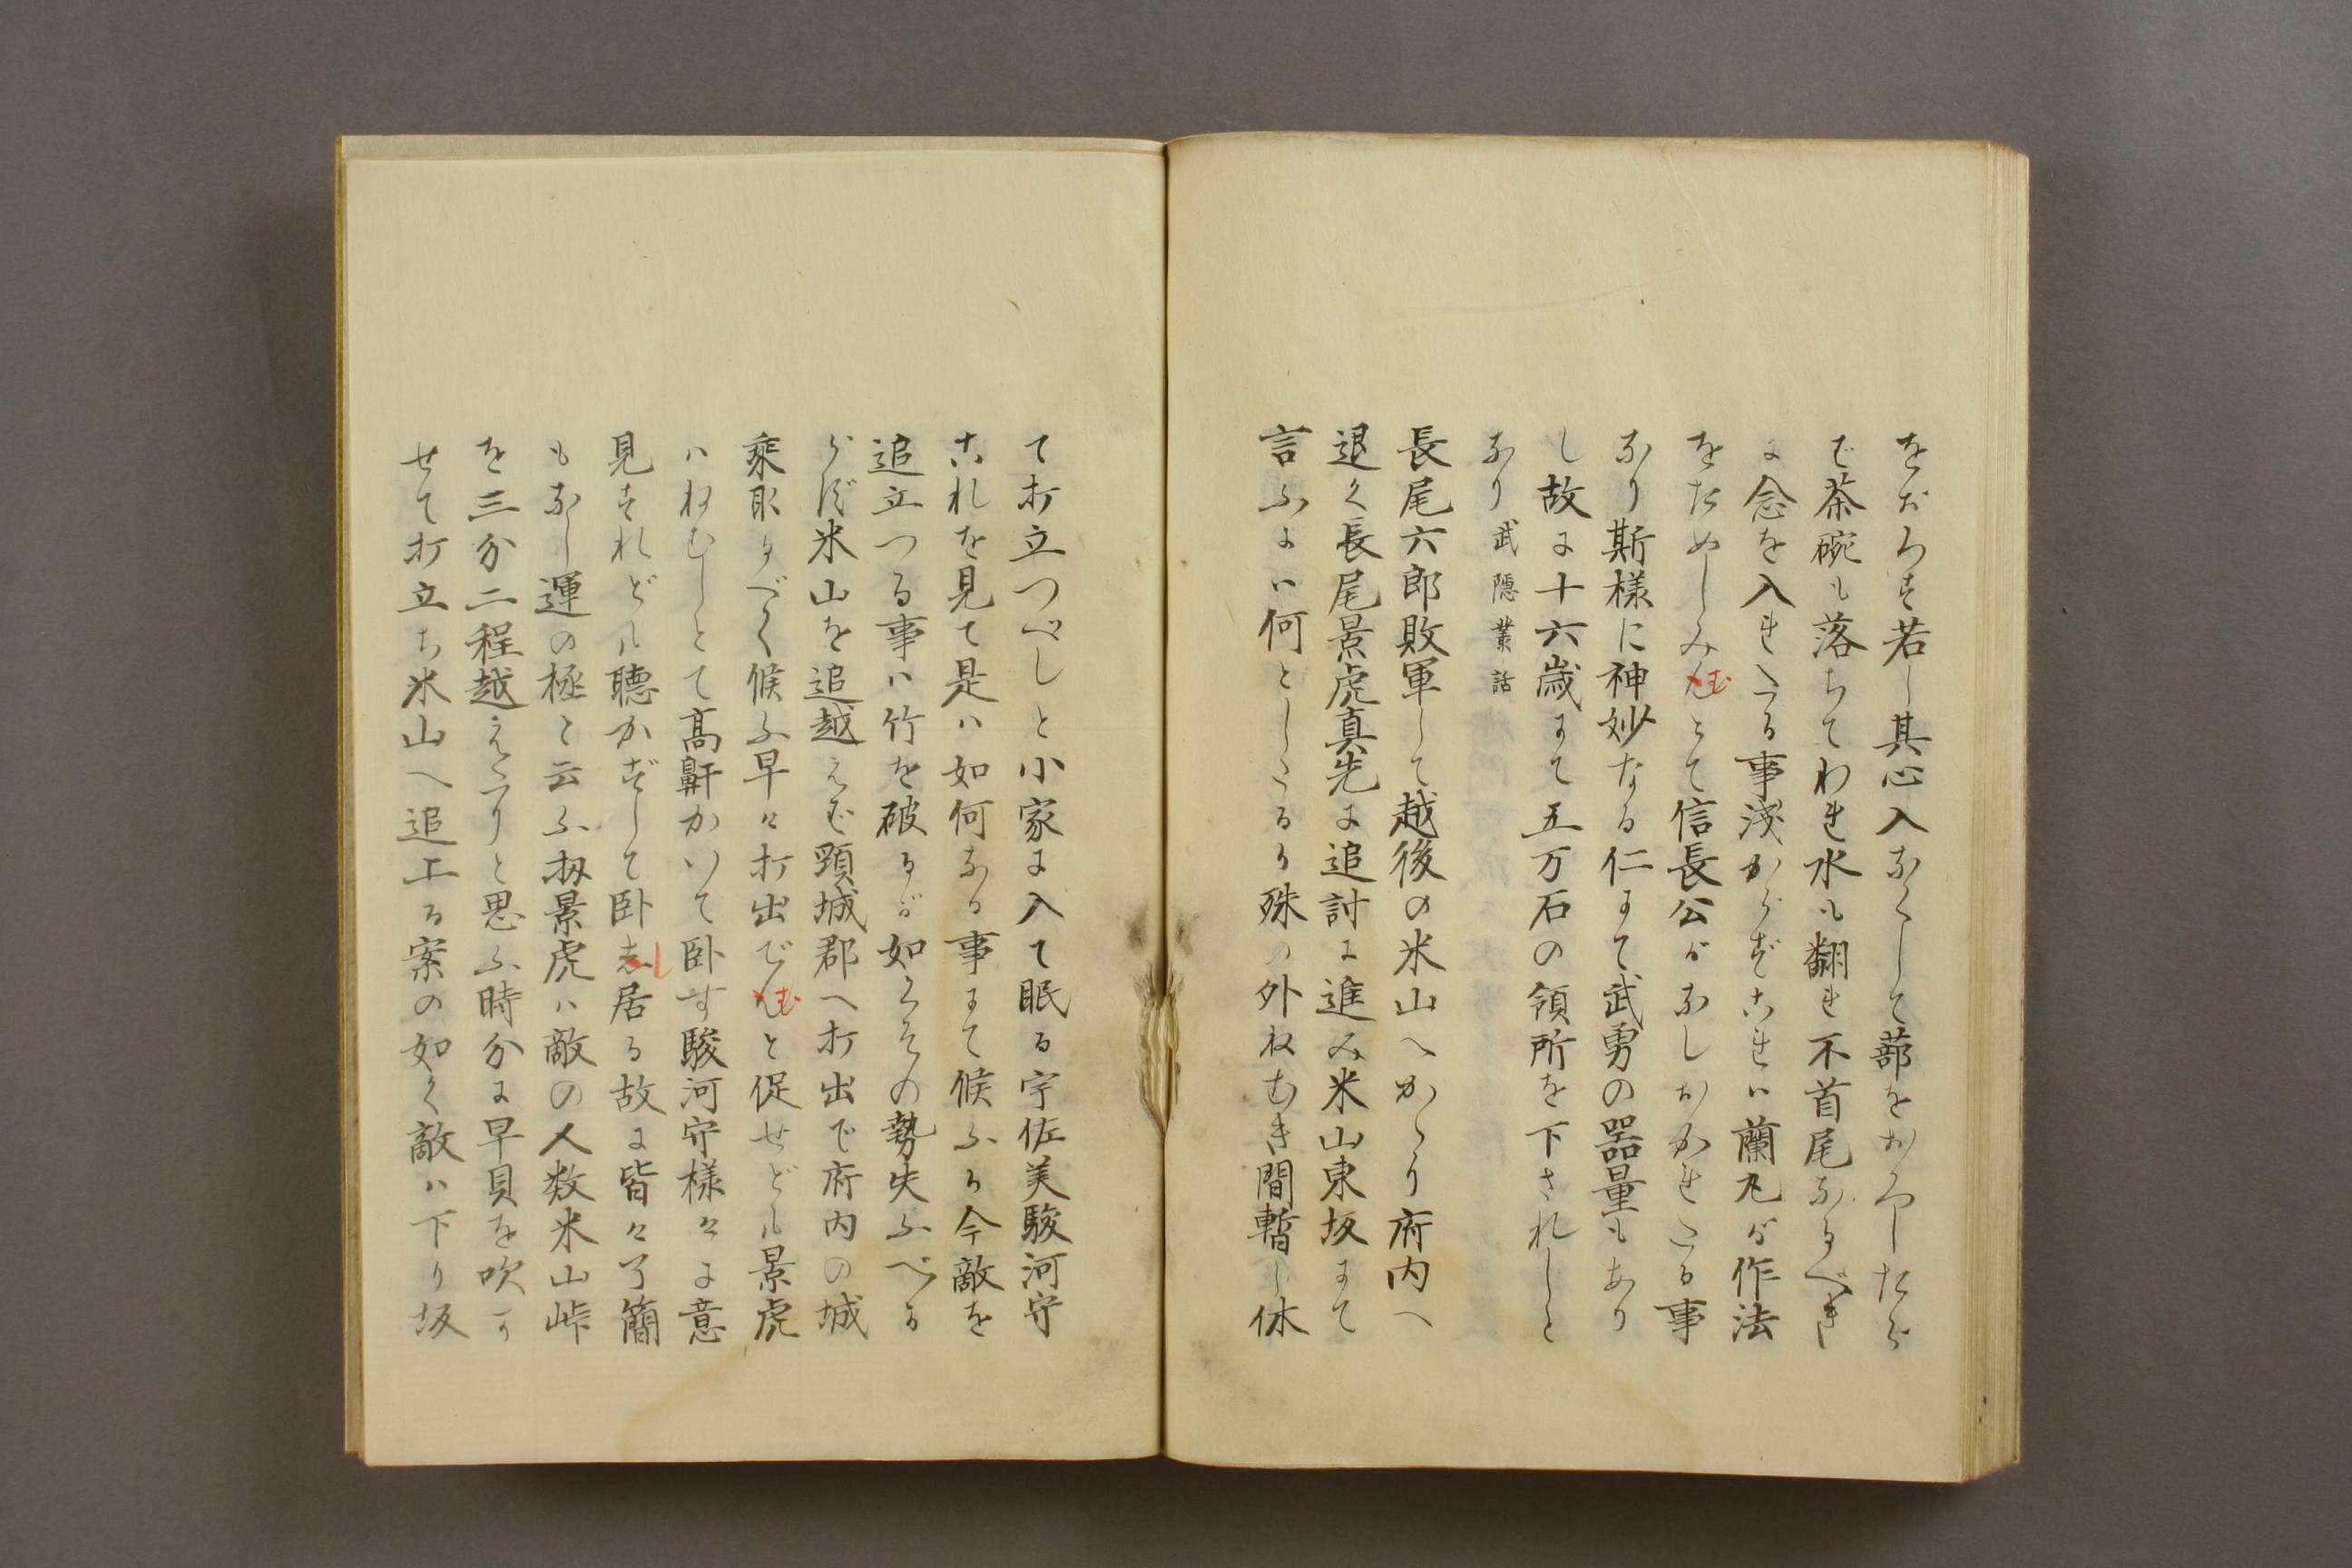 をおろす若し其心入なくして蔀をおろしたら
で茶碗も落ちてわれ水も翻れ不首尾なるべき
に念を入れたる事淺からずこれハ蘭丸が作法
をためしみんむとて信長公がなしおかれたる事
なり斯様に神妙なる仁にて武勇の器量もあり
し故に十六歳にて五万石の領所を下されしと
なり 武隠叢話
長尾六郎敗軍して越後の米山へかゝり府内へ
退く長尾景虎真先に追討に進み米山東坂にて
言ふにハ何としたるか殊の外ねむき間暫し休
て打立つべしと小家に入て眠る宇佐美駿河守
これを見て是ハ如何なる事にて候ふか今敵を
追立つる事ハ竹を破るが如くその勢失ふべか
らず米山を追越えで頸城郡へ打出で府内の城
乗取りべく候ふ早々打出でんむと促せども景虎
ハねむしとて高鼾かいて臥す駿河守様々に意
見すれども聴かずして臥志し居る故に皆々了簡
もなし運の極と云ふ扨景虎ハ敵の人数米山峠
を三分二程越えたりと思ふ時分に早貝を吹か
せて打立ち米山へ追上る案の如く敵ハ下り坂